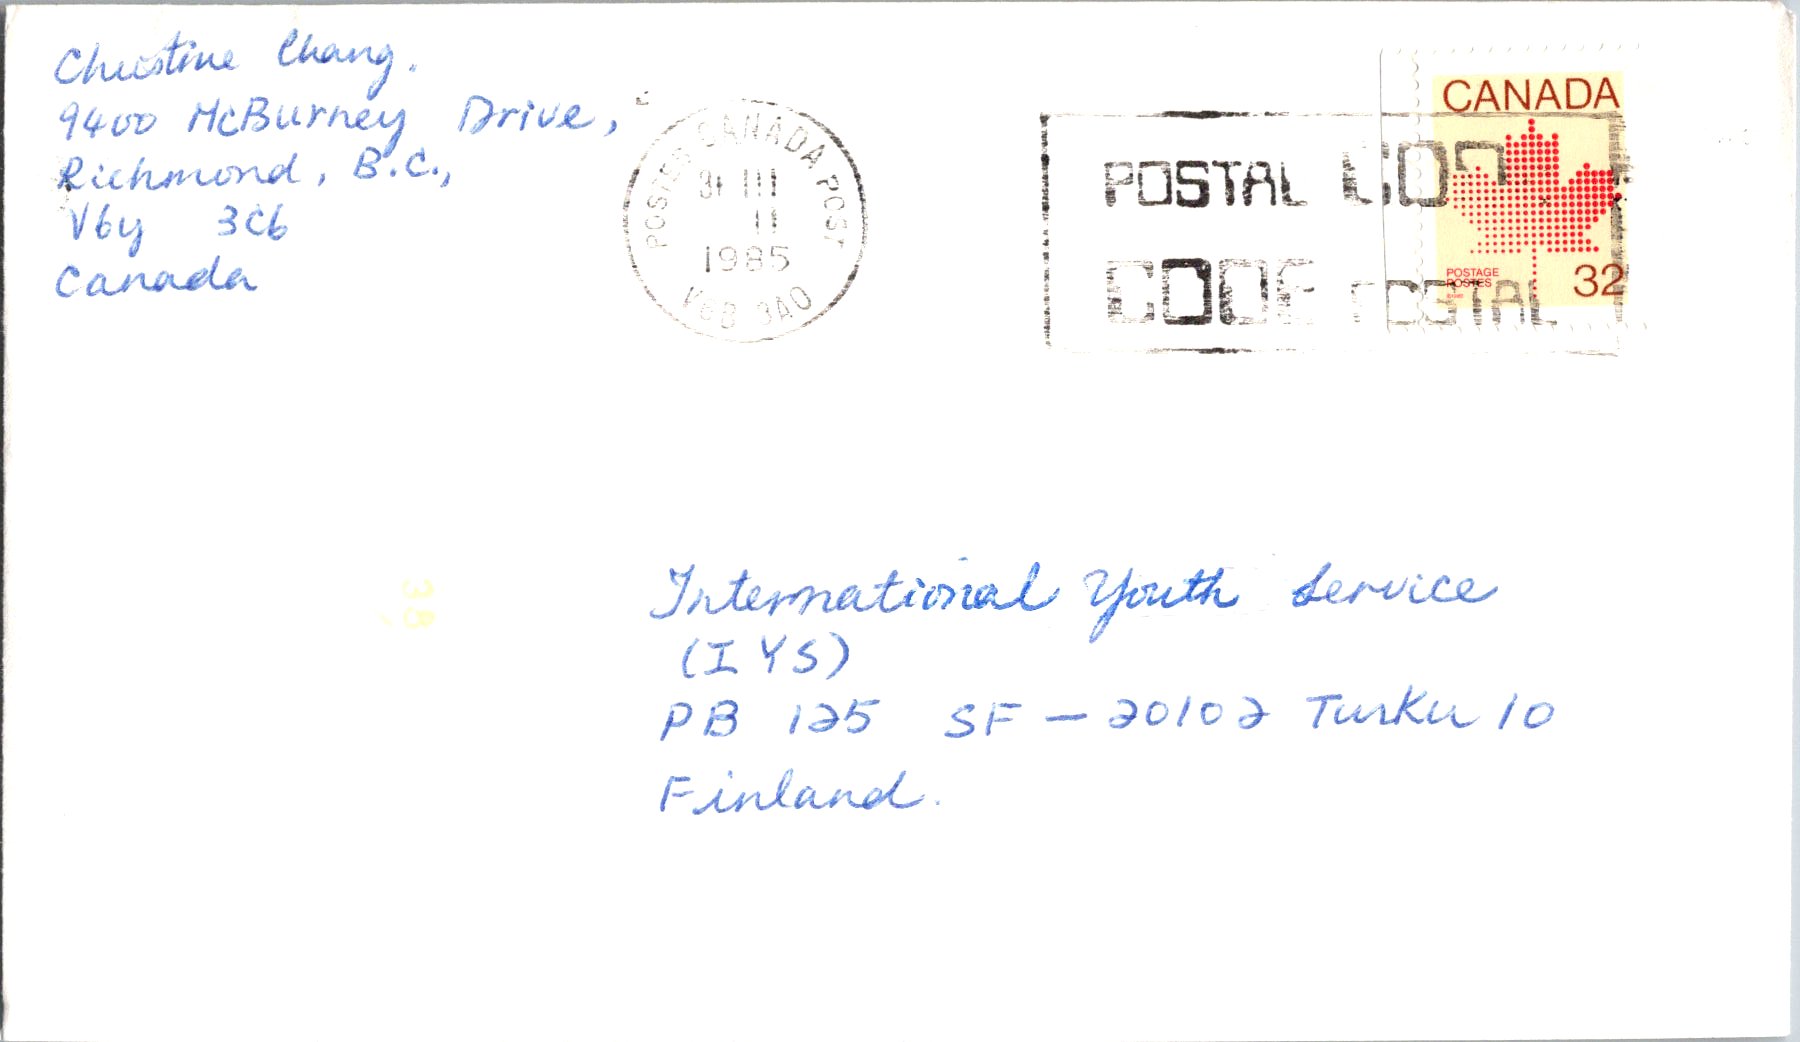 Christine Chang.
9400 McBurney Drive,
Richmond, B.C.,
V6y 3C6
Canada
POSTES CANADA POST
31 III
11
1985
V6B 3A0
POSTAL COD
CODE POSTAL
CANADA
POSTAGE
POSTES
32
International Youth Service
(IYS)
PB 125 SF - 20102 Turku 10
Finland.
38